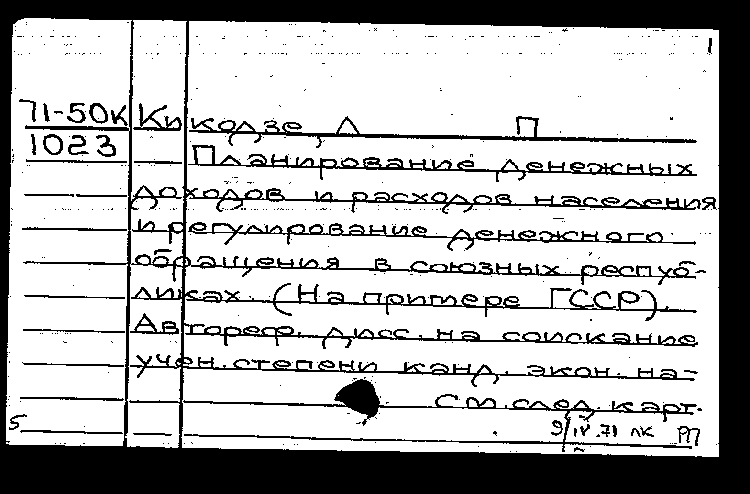 1
71-50к Кикодзе, Л П
1023 Планирование денежных
доходов и расходов населения
и регулирование денежного
обращения в союзных респуб-
ликах. (На примере ГССР).
Автореф. дисс. на соискание
учен. степени канд. экон. на-
см. след. карт.
5 9/IV.71 лк РП